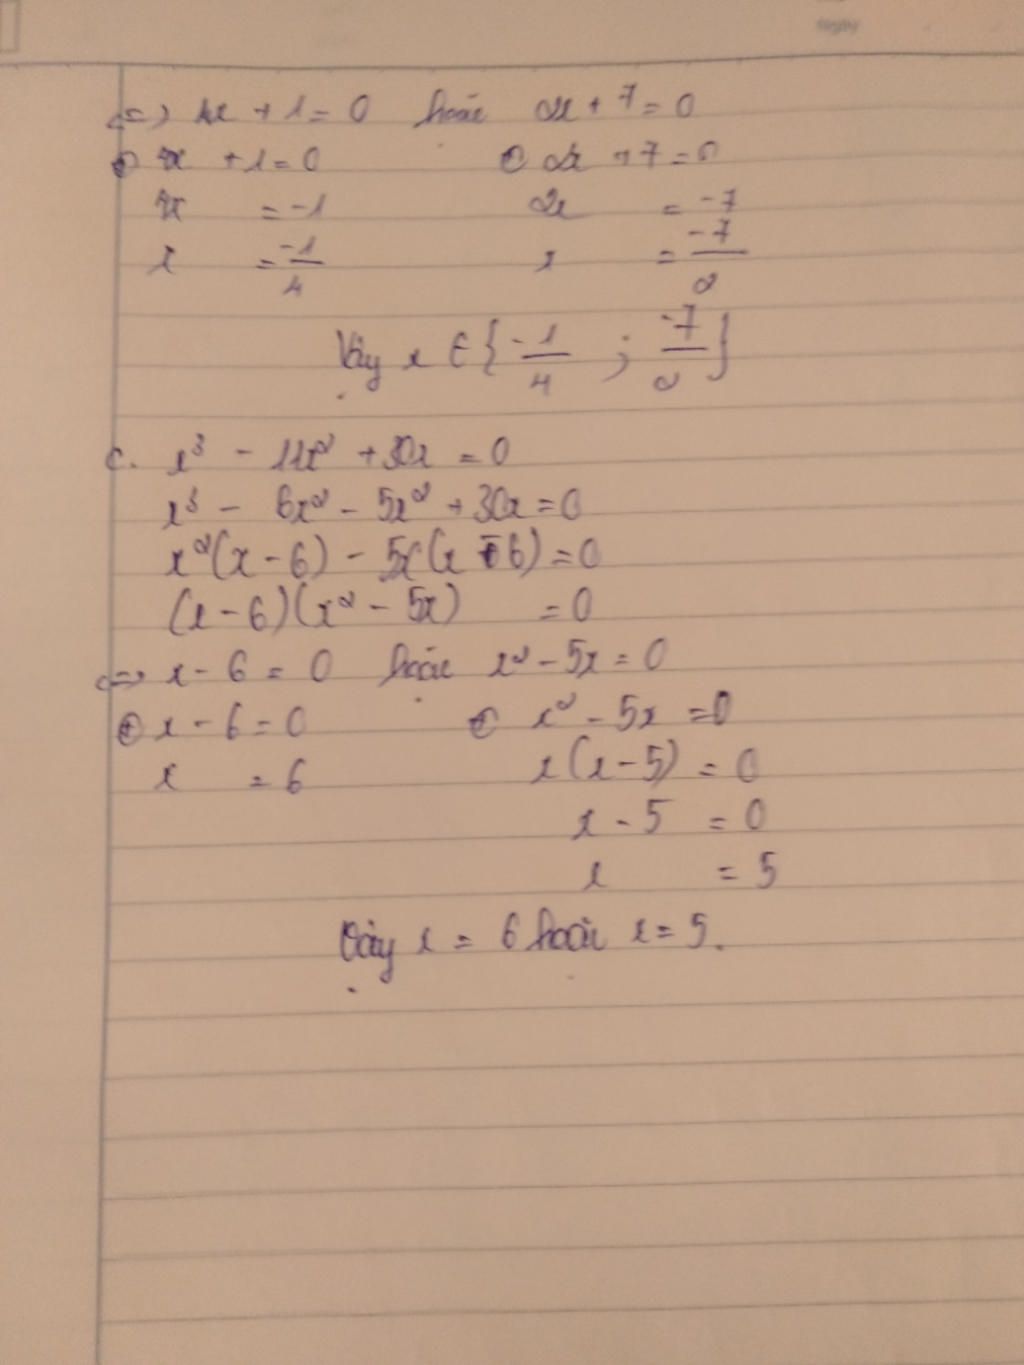 <=> 4x + 1 = 0 hoặc 2x + 7 = 0
4x + 1 = 0 2x + 7 = 0
4x = -1 2x = -7
x = -1/4 x = -7/2
Vậy x ∈ { -1/4 ; -7/2 }
c. x³ - 11x² + 30x = 0
x³ - 6x² - 5x² + 30x = 0
x²(x - 6) - 5x(x - 6) = 0
(x - 6)(x² - 5x) = 0
<=> x - 6 = 0 hoặc x² - 5x = 0
x - 6 = 0 x² - 5x = 0
x = 6 x(x - 5) = 0
x - 5 = 0
x = 5
Vậy x = 6 hoặc x = 5.